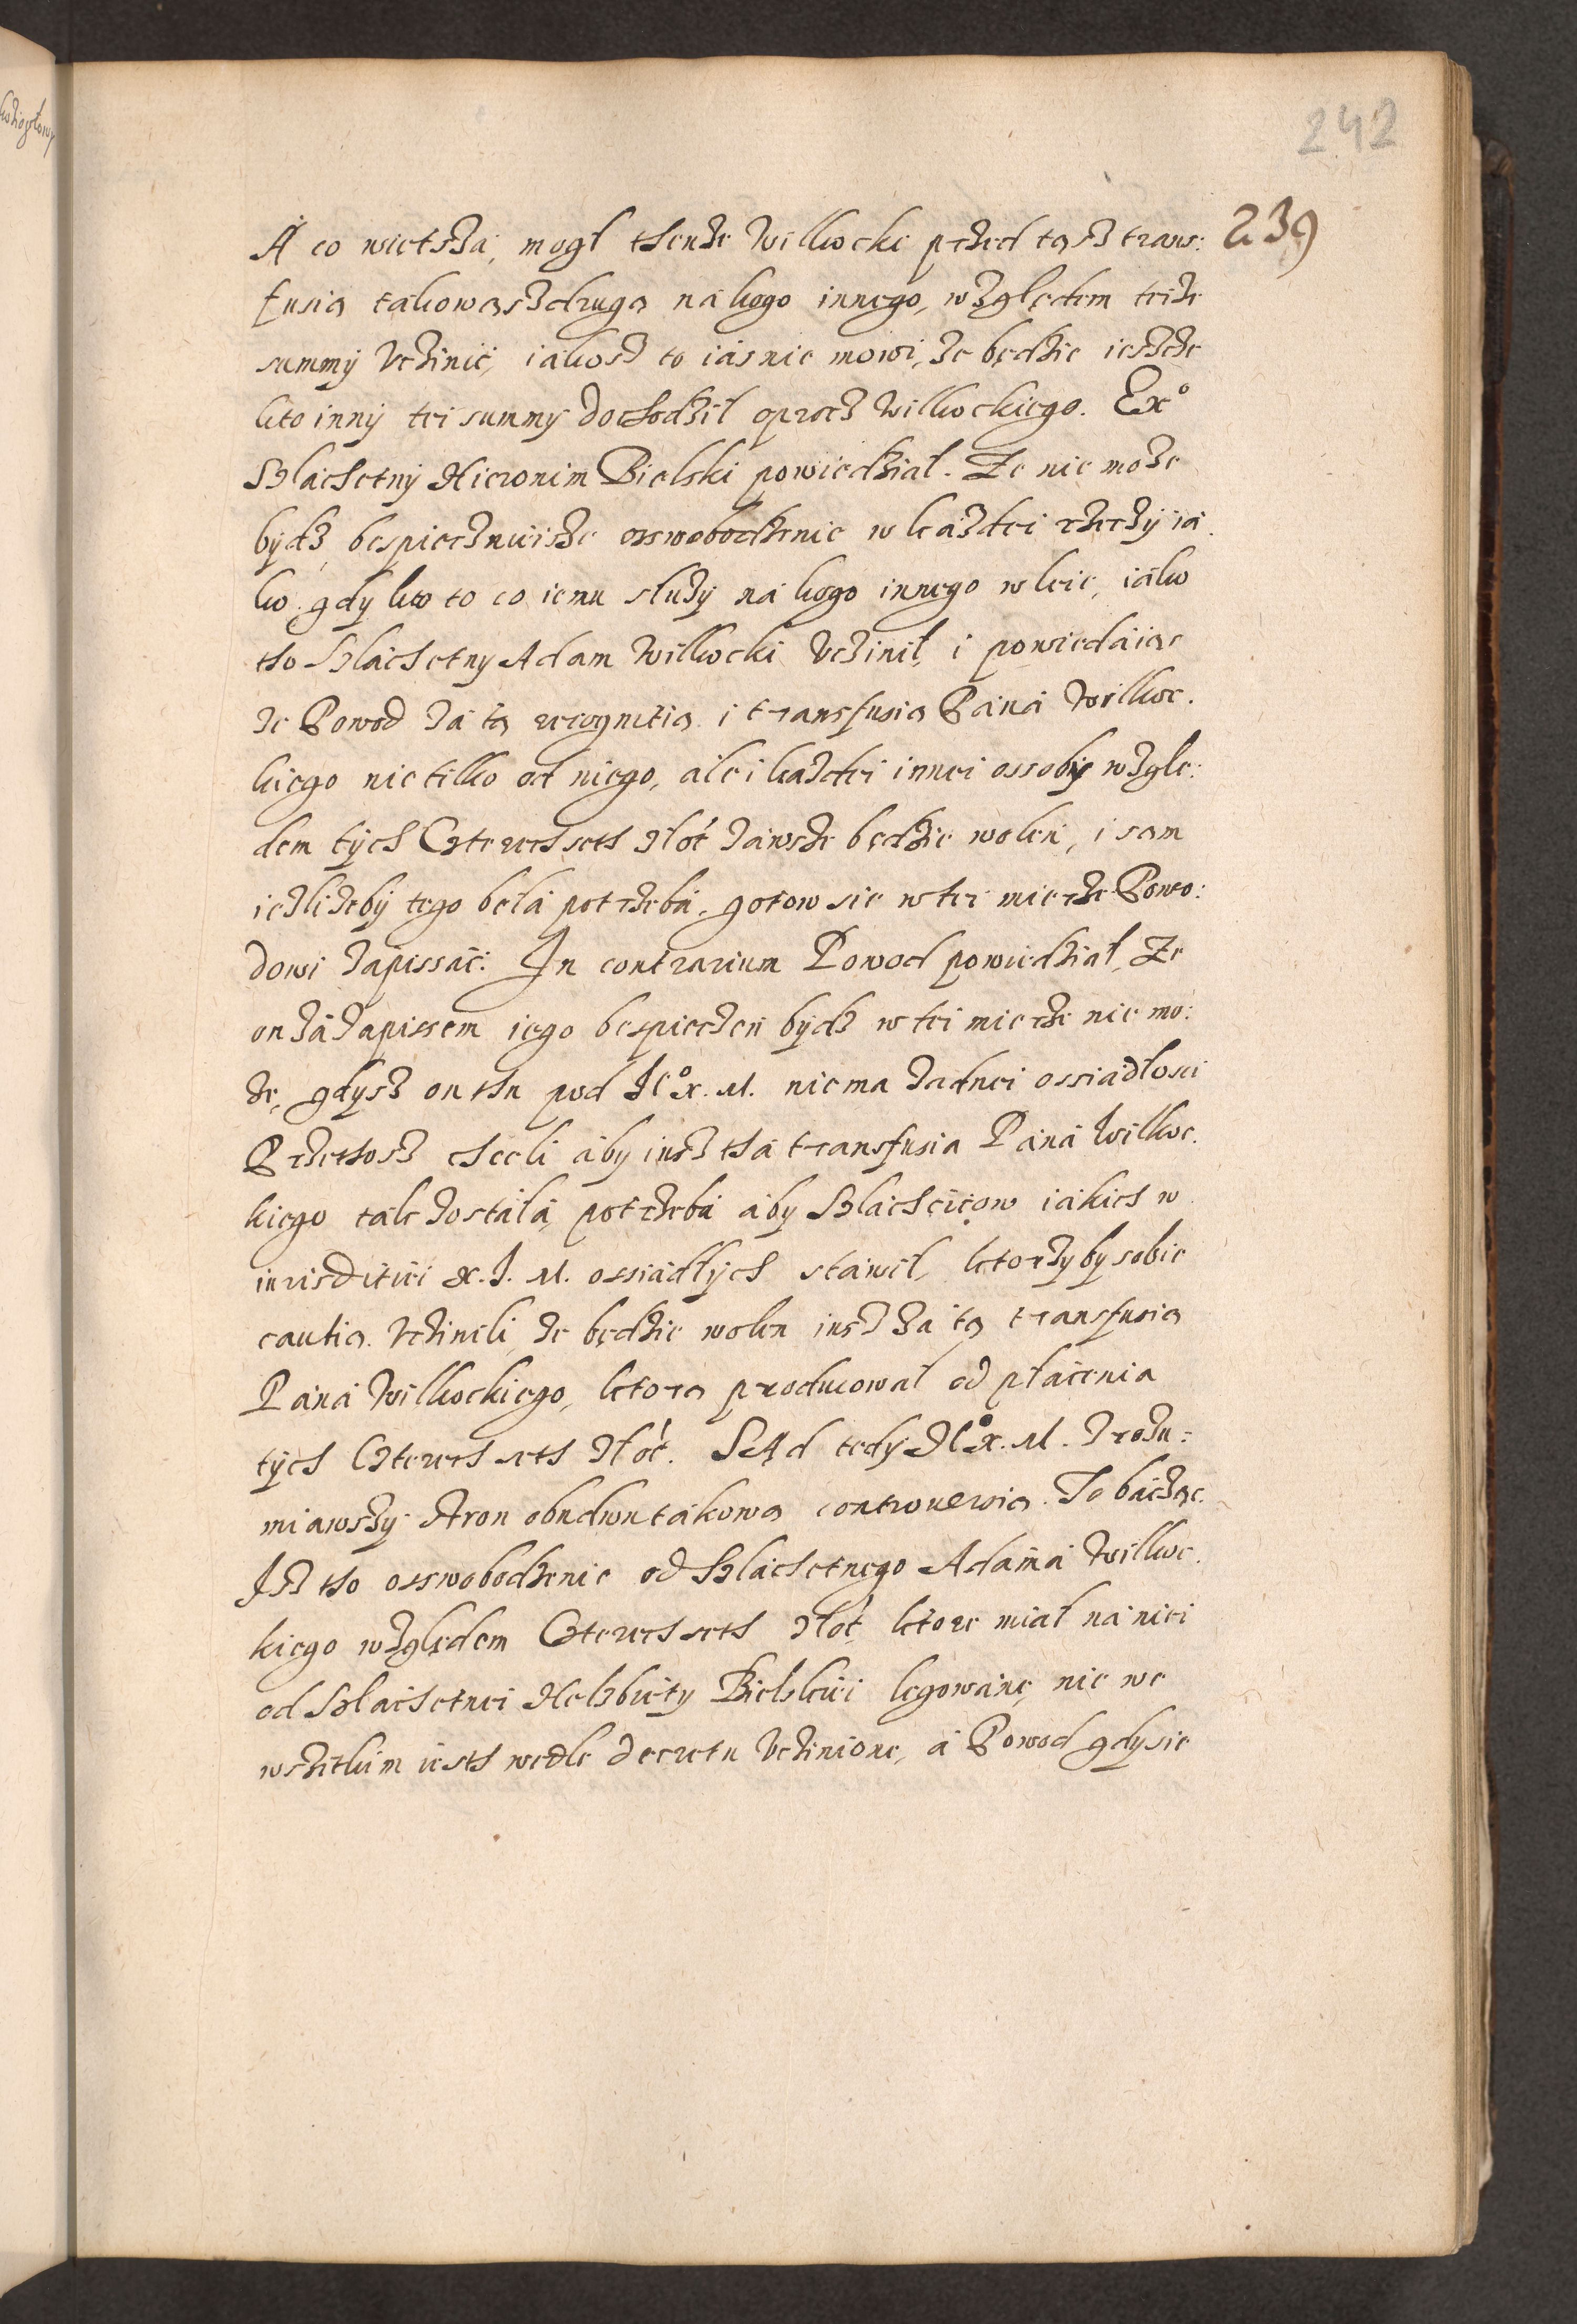 242
239
A co wietsza, mogl thenze Wilkocki przed tąsz trans:
fusią takowąsz drugą na kogo innego, względem teize
summy Vczinic, iakosz to iasnie mowi, ze będzie iescze
kto inny tei summy dochodzil oprocz Wilkockiego. Ex°
Szlachetny Hieronim Bielski powiedzial. Ze nie moze
bydz bespiecznieisze osswobodzenie w kazdei rzeczy ia
ko gdy kto to co iemu sluzy na kogo innego wleie, iako
tho Szlachetny Adam Wilkocki Vczinil, i powiedaiąc
ze Powod za tą recognitią i transfusią Pana Wilkoc.
kiego nie tilko od niego, ale i kazdei innei ossoby wzglę:
dem tych Czterechseth zlot. zawsze będzie wolen, i sam
iezlizeby tego bela potrzeba, gotow sie w tei mierze Powo:
dowi zapissac: In contrarium Powod powiedzial, Ze
on za zapissem iego bespieczen bydz w tei mierze nie mo:
ze, gdysz on thu pod Il° x. M. nie ma zadnei ossiadlosci
Przethosz chceli aby iusz tha transfusia Pana Wilkoc.
kiego tak zostala, potrzeba aby Szlachcicow iakich w
iurisditiei x. I. M. ossiadlych stawil, ktorzyby sobie
cautią Vczinili, ze będzie wolen iusz za tą transfusią
Pana Wilkockiego, ktorą producowal od placenia
tych Czterech seth zlot. SĄd tedy Il° x. M. zrozu:
miawszy stron obudwu takową controuersią. To bacząc
Isz tho osswobodzenie od Szlachetnego Adama Wilkoc.
kiego względem Czterech seth zlot, ktore mial na niei
od Szlachetnei Helzbiety Bielskiei legowane, nie we
wszitkim iesth wedle decretu Vczinione, a Powod gdy sie